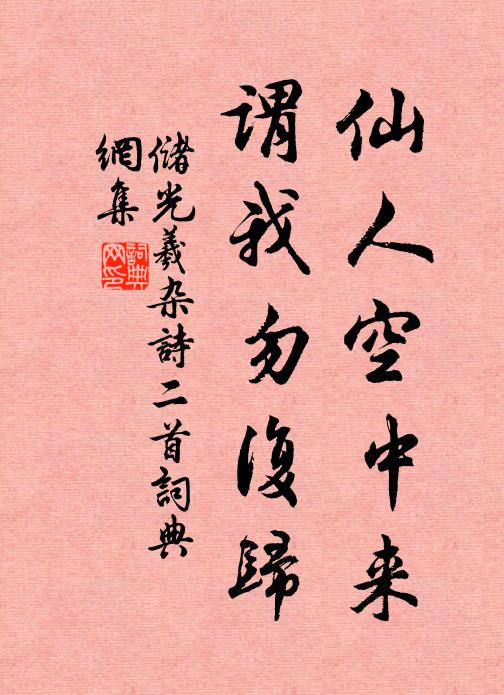 仙人空中来
謂我勿復歸
儲光羲杂詩二首詞典
網集
詞典
网印